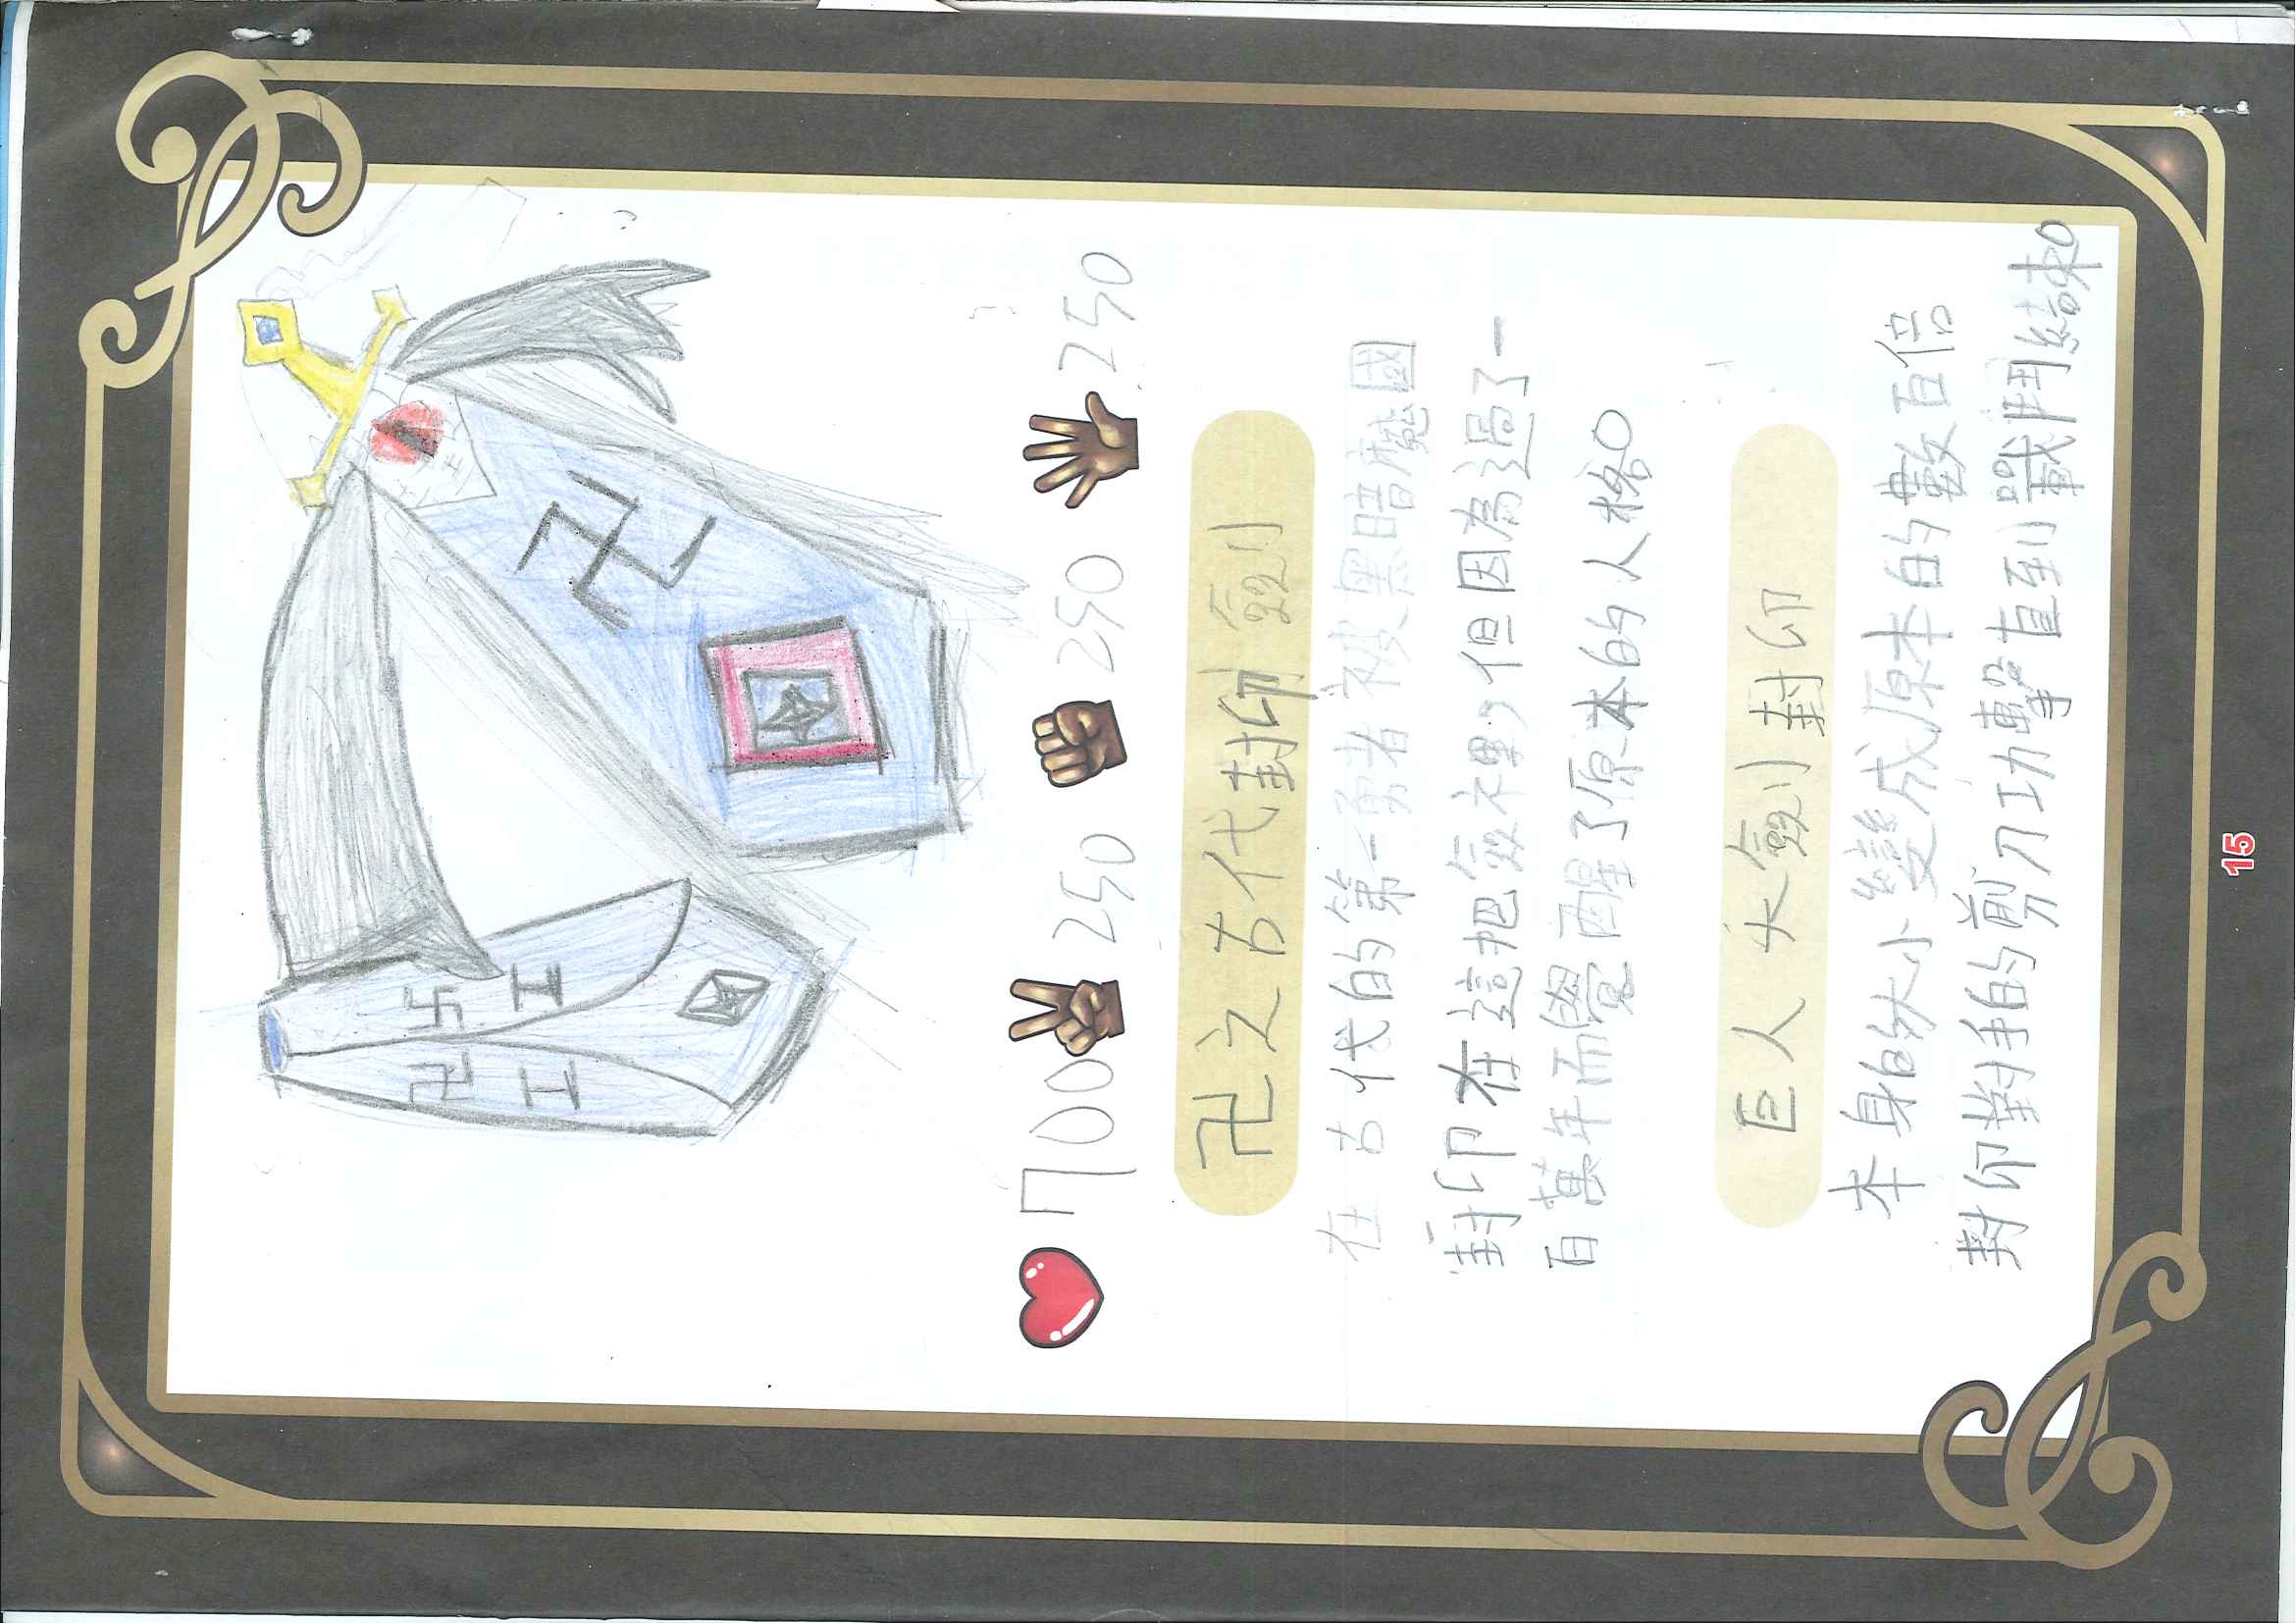 卍 工
卐 工
卍
700 250 250 250
卍之古代封印劍
在古代的第一勇者被黑暗魔國
封印在這把劍裡，但因為過了一
百萬年而覺醒了原本的人格。
巨人大劍封印
本身的大小變成原本的數百倍
封印對手的剪刀功擊直到戰鬥結束。
15